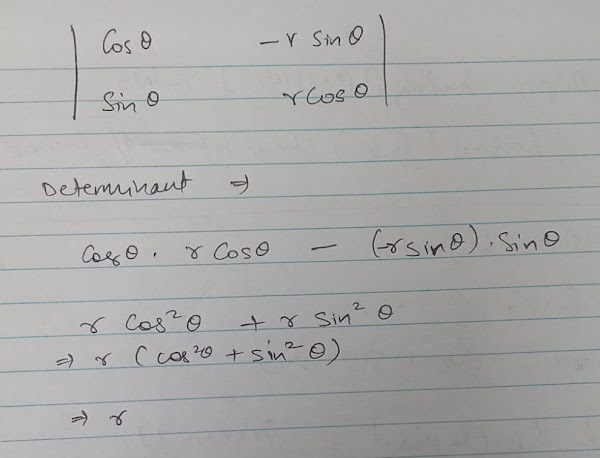 | Cos θ   - r Sin θ |
| Sin θ   r Cos θ |
Determinant ⇒
Cos θ . r Cos θ - (-r sin θ) . Sin θ
r Cos² θ + r Sin² θ
⇒ r (cos²θ + sin² θ)
⇒ r